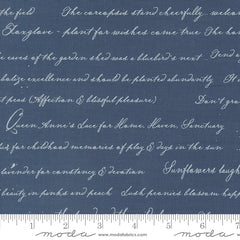 the field The coreopsis stand cheerfully... welcom
Foxglove - plant for wishes came true The ha
the eaves of the garden shed was a bluebird's nest Tend a
balize excellence and should be planted abundantly It
t peas (Affection & blissful pleasure) Don't gra
Queen Anne's Lace for Home, Haven, Sanctuary
for childhood memories of play & days in the sun
lavender for constancy & devotion Sunflowers laugh
beauty in pinks and peach Lush peonies blossom happ
moda
www.modafabrics.com
moda